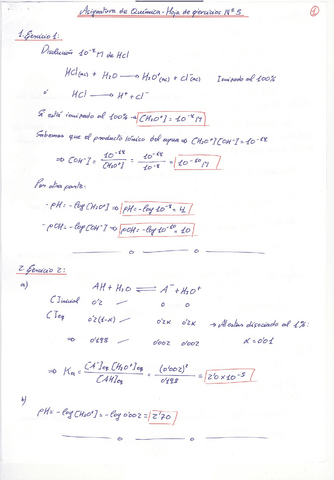 Asignatura de Química - Hoja de ejercicios Nº 5
1
1. Ejercicio 1:
Disolución 10⁻⁴ M de HCl
HCl(ac) + H₂O → H₃O⁺(ac) + Cl⁻(ac) Ionizado al 100%
ó HCl → H⁺ + Cl⁻
Si está ionizado al 100% → [H₃O⁺] = 10⁻⁴ M
Sabemos que el producto iónico del agua ⇒ [H₃O⁺][OH⁻] = 10⁻¹⁴
⇒ [OH⁻] = 10⁻¹⁴/[H₃O⁺] = 10⁻¹⁴/10⁻⁴ = 10⁻¹⁰ M
Por otra parte:
- pH = -log[H₃O⁺] ⇒ pH = -log 10⁻⁴ = 4
- pOH = -log[OH⁻] ⇒ pOH = -log 10⁻¹⁰ = 10
2. Ejercicio 2:
a) AH + H₂O ⇌ A⁻ + H₃O⁺
C Inicial 0'2 / 0 0
C Eq 0'2(1-α) / 0'2α 0'2α → Al estar disociado al 1%:
⇒ 0'198 / 0'002 0'002 α = 0'01
⇒ Ka = [A⁻]eq [H₃O⁺]eq/[AH]eq = (0'002)²/0'198 = 2'0 × 10⁻⁵
b)
pH = -log[H₃O⁺] = -log 0'002 = 2'70